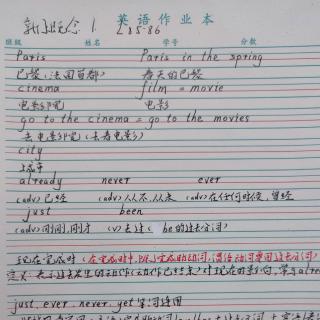 新概念 1. L85-86 英语作业本
班级 姓名 学号 分数
Paris Paris in the spring
巴黎(法国首都) 春天的巴黎
cinema film = movie
电影院 电影
go to the cinema = go to the movies
去电影院(去看电影)
city
城市
already never ever
(adv)已经 (adv)从不,从来 (adv)在任何时候,曾经
just been
(adv)刚刚,刚才 (v)去过( be的过去分词)
现在完成时(在完成时中,
定义:表示过去发生的动作 对现在的影响,常与al
just, ever, never, yet 等词连用